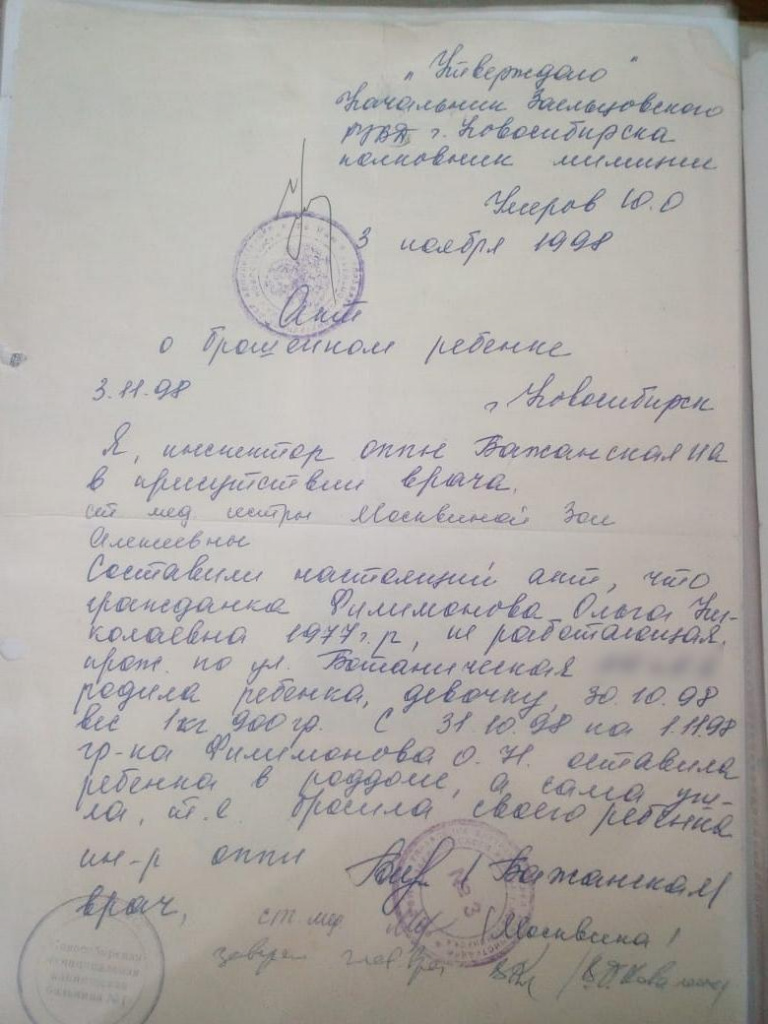 „Утверждаю"
Начальник Заельцовского
РУВД г. Новосибирска
полковник милиции
Умеров Ю.О
3 ноября 1998
Акт
о брошенном ребенке
3.11.98
г Новосибирск
Я, инспектор оппн Бажанская НА
в присутствии врача.
ст мед сестры Москвиной Зои
Алексеевны
Составили настоящий акт, что
гражданка Филимонова Ольга Ни-
колаевна 1977 г.р, не работающая.
прож. по ул. Ботаническая
родила ребенка, девочку, 30.10.98
вес 1кг 900 гр. С 31.10.98 на 1.11.98
гр-ка Филимонова О.Н. оставила
ребенка в роддоме, а сама уш-
ла, т.е. бросила своего ребенка
ин-р оппн /Бажанская/
врач, ст. мед /Москвина/
глав. врач
№ 3
больница №1